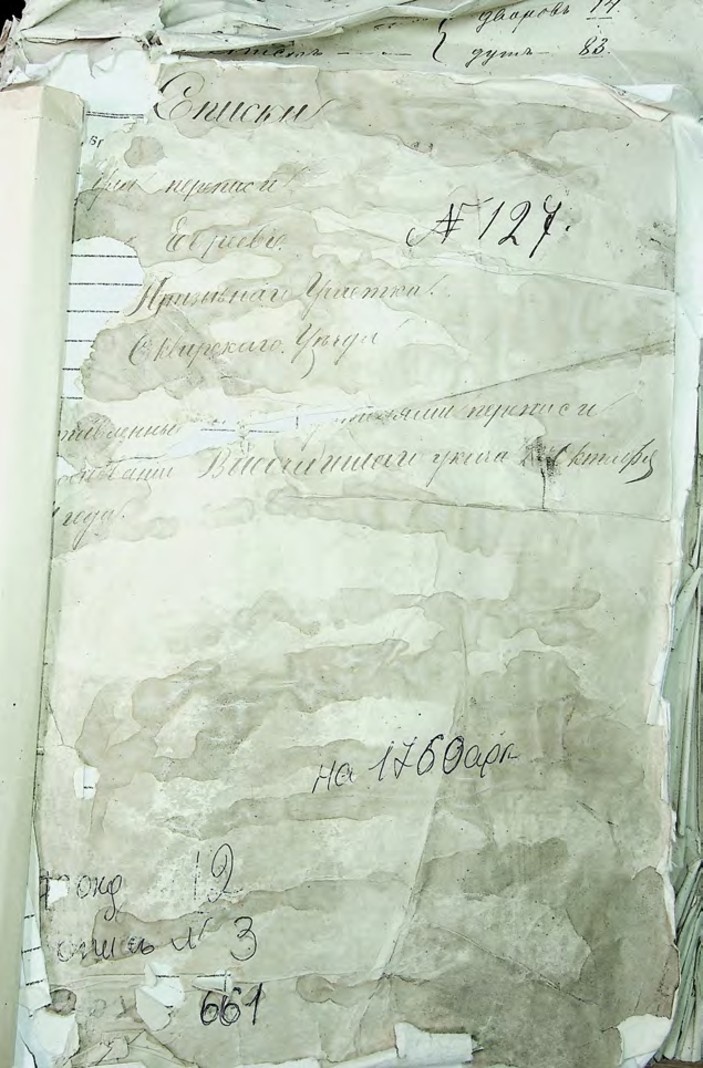 дворовъ 14.
душъ 83.
Списки
переписи
Евреевъ
№ 127.
Призывнаго Участка
Сквирскаго Уѣзда
переписи
Высочайшаго указа Октября
года.
на 1760 арк
фонд 12
опись № 3
661